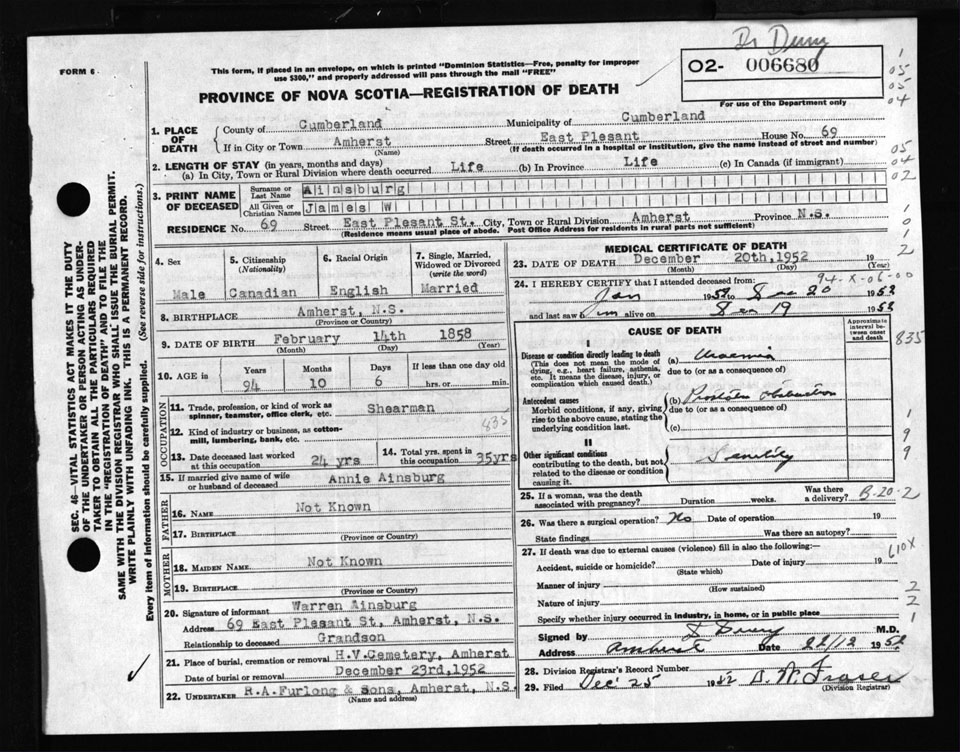 Dr Drury
FORM 6
This form, if placed in an envelope, on which is printed "Dominion Statistics—Free, penalty for improper
use $300," and properly addressed will pass through the mail "FREE"
O2- 006680
For use of the Department only
PROVINCE OF NOVA SCOTIA—REGISTRATION OF DEATH
05
05
04
05
04
02
SEC. 46—VITAL STATISTICS ACT MAKES IT THE DUTY
OF THE UNDERTAKER OR PERSON ACTING AS UNDER-
TAKER TO OBTAIN ALL THE PARTICULARS REQUIRED
IN THE "REGISTRATION OF DEATH" AND TO FILE THE
SAME WITH THE DIVISION REGISTRAR WHO SHALL ISSUE THE BURIAL PERMIT.
WRITE PLAINLY WITH UNFADING INK. THIS IS A PERMANENT RECORD.
Every item of information should be carefully supplied. (See reverse side for instructions.)
1. PLACE OF DEATH
County of Cumberland Municipality of Cumberland
If in City or Town Amherst Street East Plesant House No. 69
(Name) (If death occurred in a hospital or institution, give the name instead of street and number)
2. LENGTH OF STAY (in years, months and days)
(a) In City, Town or Rural Division where death occurred Life (b) In Province Life (c) In Canada (if immigrant)
3. PRINT NAME OF DECEASED
Surname or Last Name Ainsburg
All Given or Christian Names James W
RESIDENCE No. 69 Street East Plesant St. City, Town or Rural Division Amherst Province N.S.
(Residence means usual place of abode. Post Office Address for residents in rural parts not sufficient)
4. Sex
Male
5. Citizenship
(Nationality)
Canadian
6. Racial Origin
English
7. Single, Married,
Widowed or Divorced
(write the word)
Married
8. BIRTHPLACE Amherst, N.S.
(Province or Country)
9. DATE OF BIRTH February 14th 1858
(Month) (Day) (Year)
10. AGE in
Years Months Days If less than one day old
94 10 6 hrs. or min.
OCCUPATION
11. Trade, profession, or kind of work as
spinner, teamster, office clerk, etc. Shearman
12. Kind of industry or business, as cotton-
mill, lumbering, bank, etc.
835
13. Date deceased last worked
at this occupation 24 yrs
14. Total yrs. spent in
this occupation 35yrs
15. If married give name of wife
or husband of deceased Annie Ainsburg
FATHER
16. NAME Not Known
17. BIRTHPLACE
(Province or Country)
MOTHER
18. MAIDEN NAME Not Known
19. BIRTHPLACE
(Province or Country)
20. Signature of informant Warren Ainsburg
Address 69 East Plesant St, Amherst, N.S.
Relationship to deceased Grandson
21. Place of burial, cremation or removal H.V.Cemetery, Amherst
Date of burial or removal December 23rd,1952
22. UNDERTAKER R.A.Furlong & Sons, Amherst, N.S.
(Name and address)
MEDICAL CERTIFICATE OF DEATH
23. DATE OF DEATH December 20th,1952 19
(Month) (Day) (Year)
94-X-06-00
24. I HEREBY CERTIFY that I attended deceased from:
Jan 1952 to Dec 20 1952
and last saw him alive on Dec 19 1952
CAUSE OF DEATH
Approximate
interval be-
tween onset
and death
835
I
Disease or condition directly leading to death
(This does not mean the mode of
dying, e.g., heart failure, asthenia,
etc. It means the disease, injury, or
complication which caused death.)
(a) Uraemia
due to (or as a consequence of)
Antecedent causes
Morbid conditions, if any, giving
rise to the above cause, stating the
underlying condition last.
(b) Prostatic obstruction
due to (or as a consequence of)
(c)
II
Other significant conditions
contributing to the death, but not
related to the disease or condition
causing it.
Senility
9
9
25. If a woman, was the death
associated with pregnancy? Duration weeks. Was there
a delivery? B-20-2
26. Was there a surgical operation? No Date of operation 19
State findings Was there an autopsy?
27. If death was due to external causes (violence) fill in also the following:—
Accident, suicide or homicide? Date of injury 19
(State which)
610X
Manner of injury
(How sustained)
Nature of injury
Specify whether injury occurred in industry, in home, or in public place
2
2
1
Signed by D Drury M.D.
Address Amherst Date 22/12 1952
28. Division Registrar's Record Number
29. Filed Dec' 25 1952 B. W. Fraser
(Division Registrar)